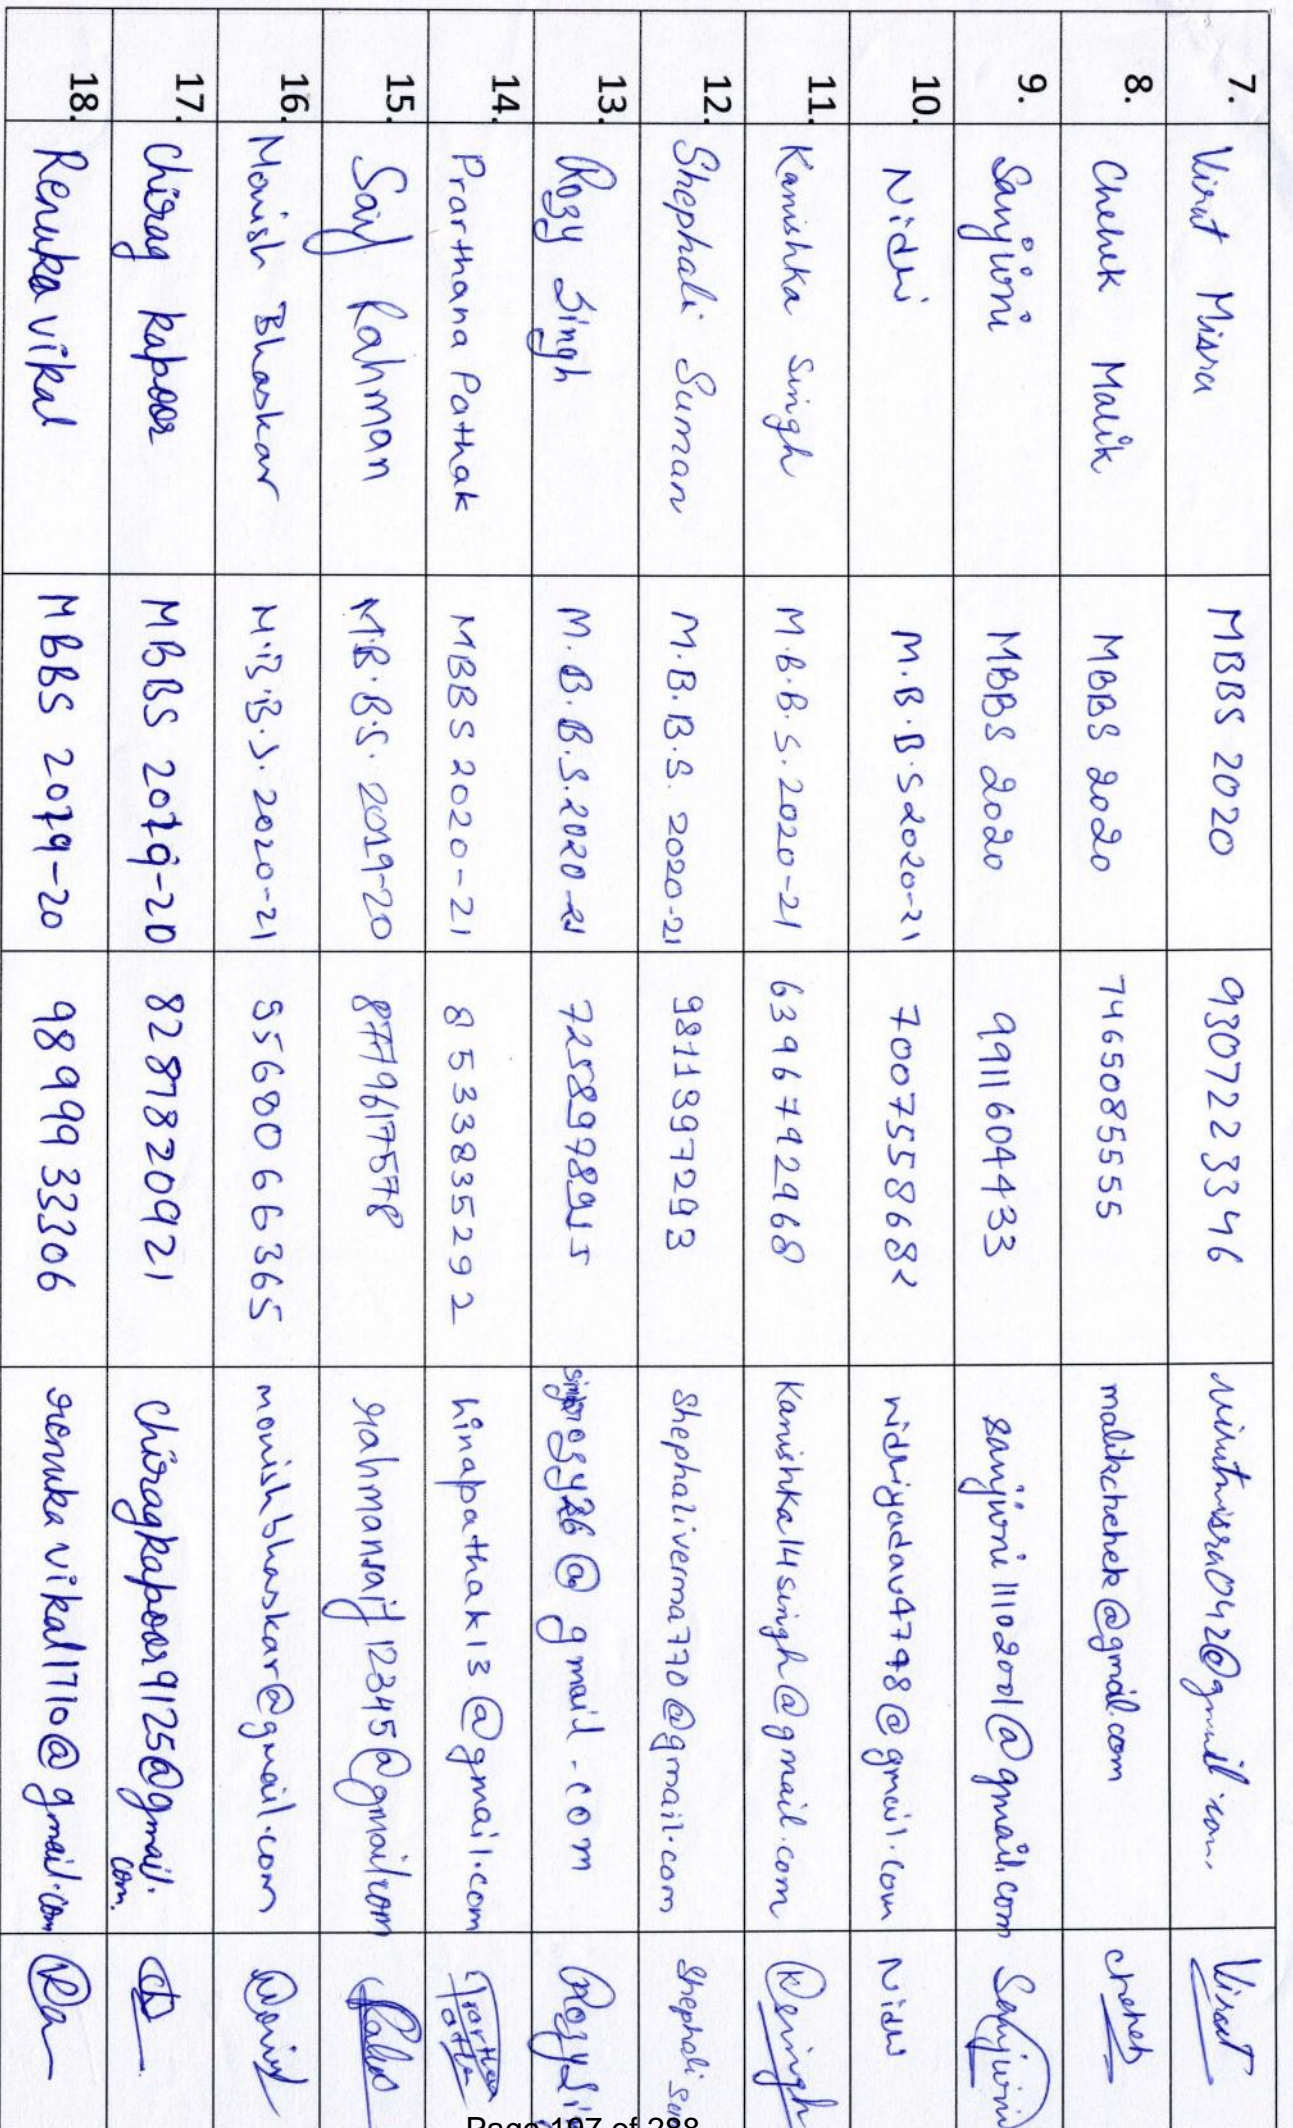 7. Virat Misra MBBS 2020 9307223346 Virat
8. Chehek Malik MBBS 2020 7465085555 malikchehek@gmail.com chehek
9. Sanjivni MBBS 2020 9911604433 sanjivni11102001@gmail.com Sanjivni
10. Nidhi M.B.B.S 2020-21 7007558682 nidhiyadav4798@gmail.com Nidhi
11. Kanishka Singh M.B.B.S. 2020-21 6396792968 Kanishka14singh@gmail.com KSingh
12. Shephali Suman M.B.B.S. 2020-21 9811997293 Shephaliverma770@gmail.com Shephali
13. Rozy Singh M.B.B.S. 2020-21 @gmail.com Rozy
14. Prarthana Pathak MBBS 2020-21 8533835292 hinapathak13@gmail.com
15. Saif Rahman M.B.B.S. 2019-20 8779617578 rahmansaif12345@gmail.com
16. Monish Bhaskar M.B.B.S. 2020-21 monishbhaskar@gmail.com
17. Chirag Kapoor MBBS 2019-20 8287820921 chiragkapoor9125@gmail.
com.
18. Renuka vikal MBBS 2019-20 9899933306 renuka vikal1710@gmail.com